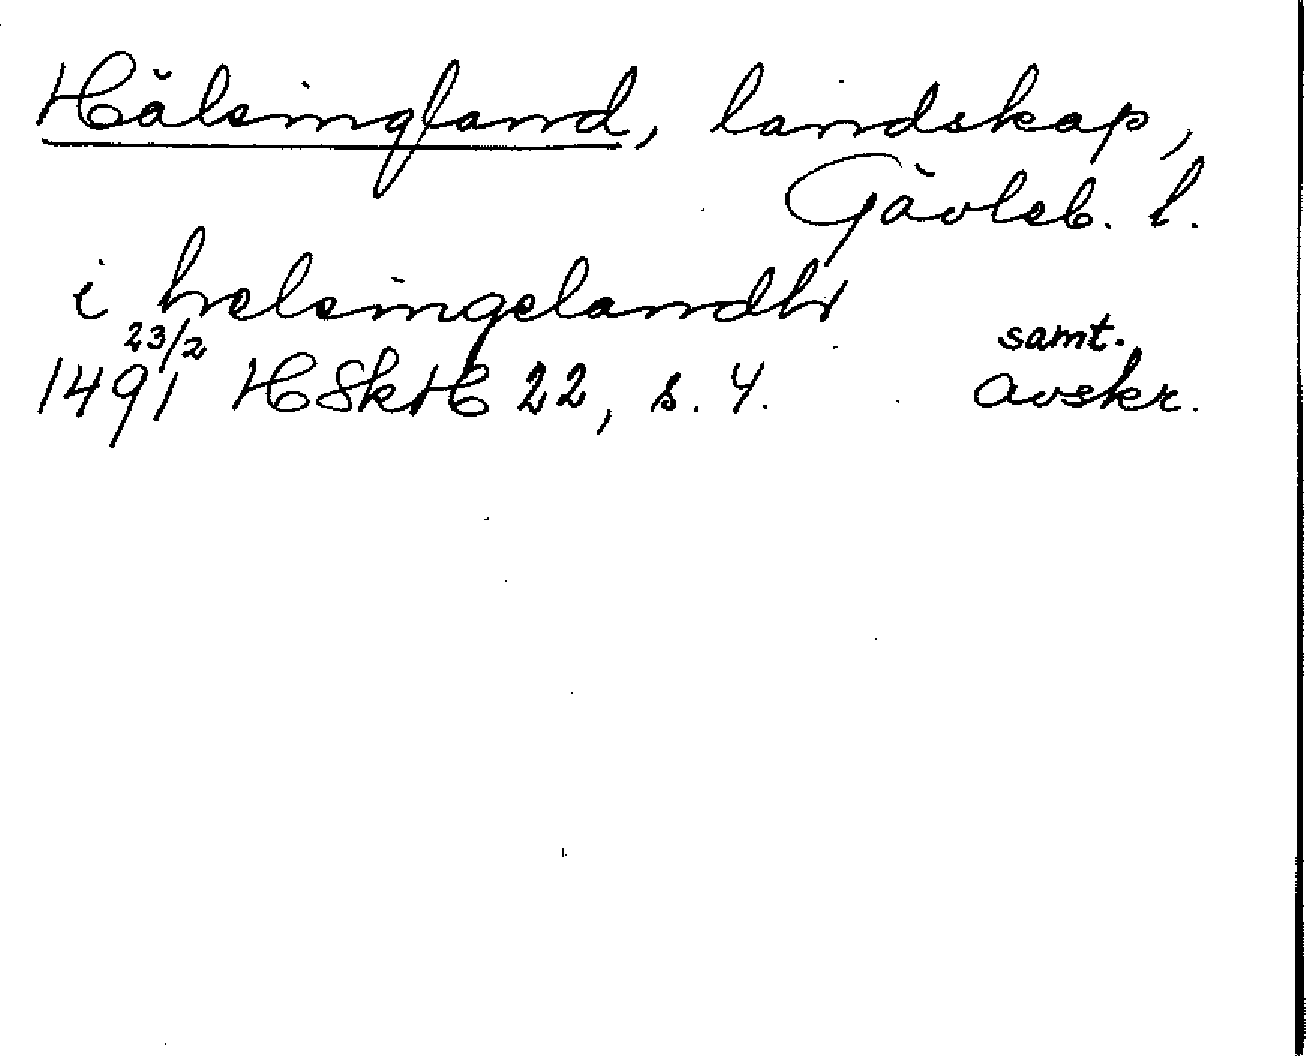 Hälsingland, landskap,
Gävleb. l.
i helsingelandh
23/2 samt.
1491 HSkH 22, s. 4. avskr.